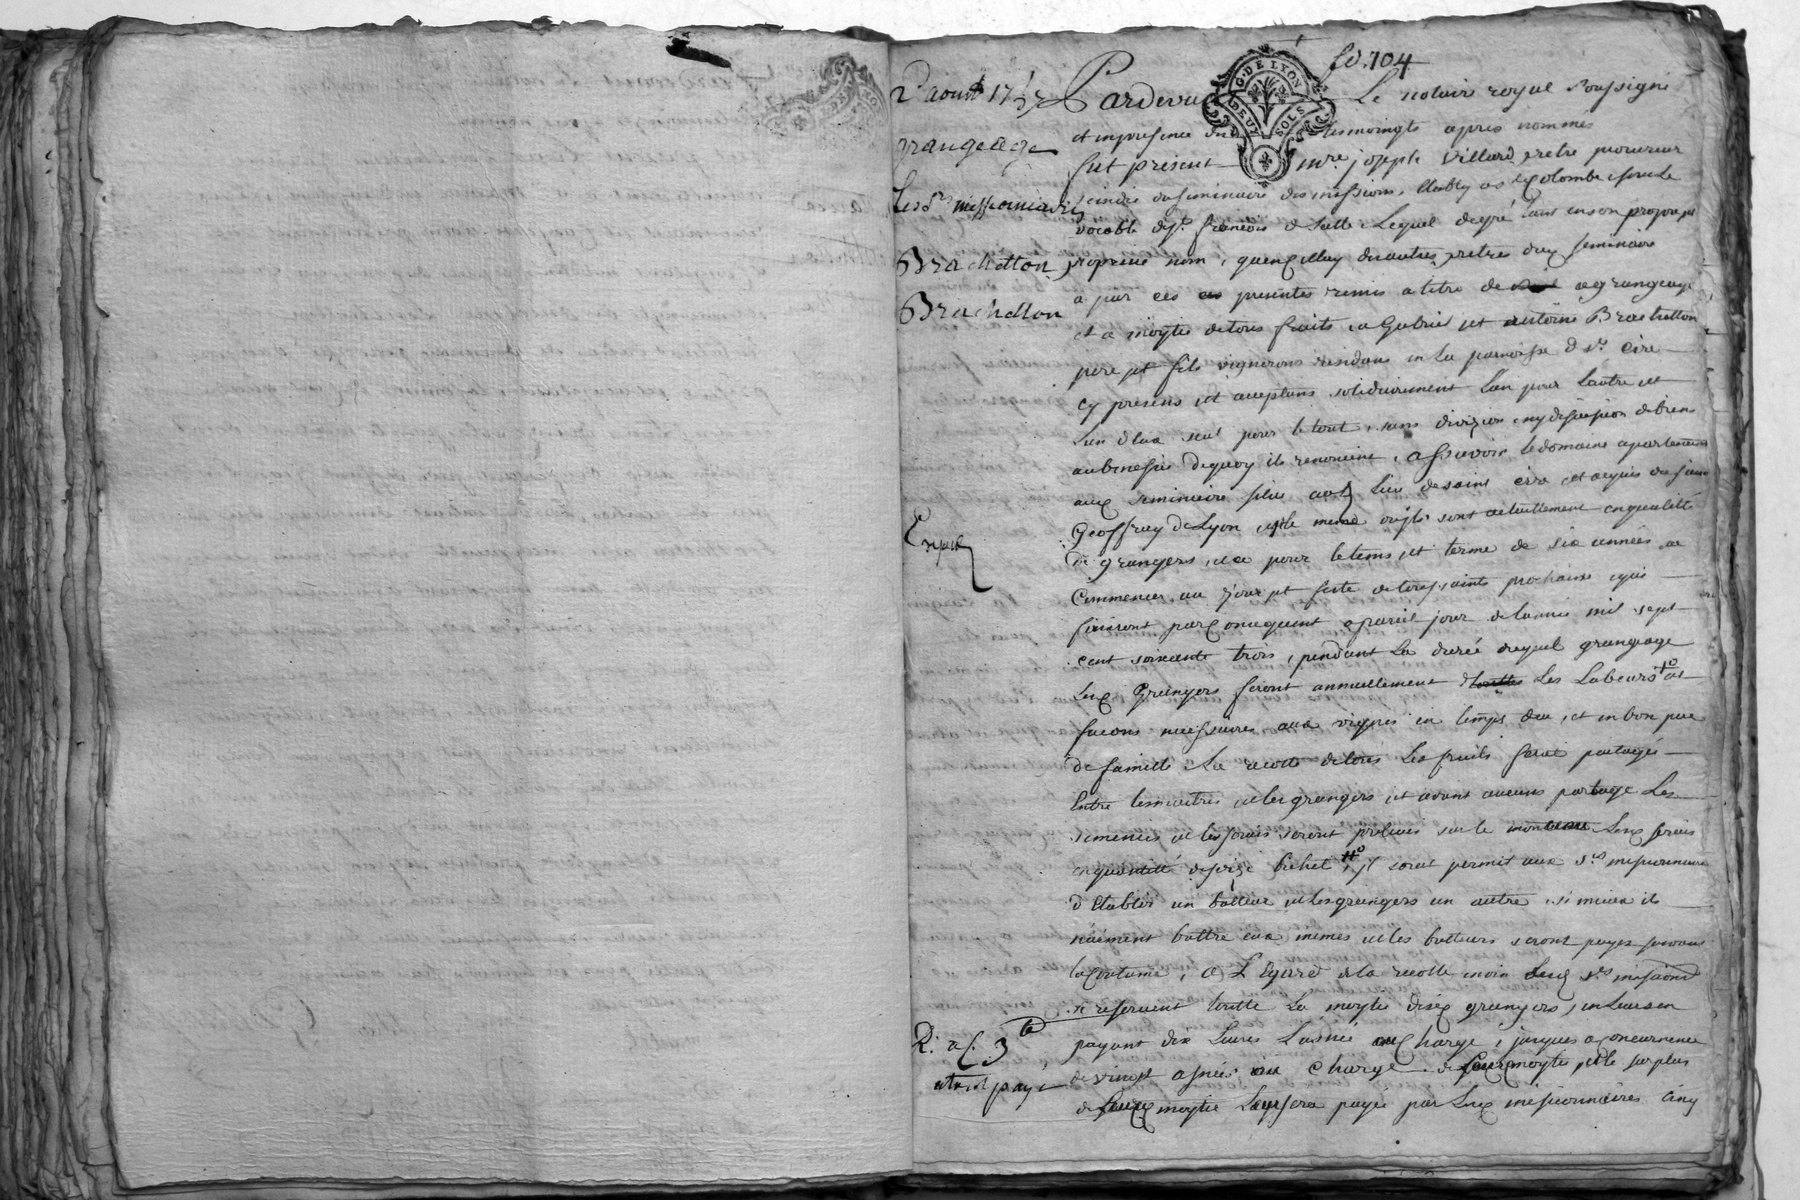 fo. 104
G. DE LYON
DEUX SOLS
2e aoust 1757
grangeage
Les srs missionnaires
Brachetton
Brachetton
Expié
R. a C. 3 tt
Pardevant Le notaire royal soussigné
et en presence des tesmoingts apres nommés
fut présent mre joseph Villard pretre procureur
scindic du seminaire des missions etably a ste Colombe sous le
vocable de st francois de salle Lequel de gré tant en son propre et
propriné nom, quen celluy des autres pretres dud seminaire
a par ces presentes remis a titre de grangeage
et a moytié de tous fruits a Gabriel et antoine Brachetton
pere et fils vignerons residans en La paroisse de st cire
cy presens et aceptans solidairement Lun pour Lautre et
Lun deux seul pour le tout, sans division ny discussion de biens
au benefice de quoy ils renoncent, assavoir le domaine apartenant
aux seminaire situé aud Lieu de saint cire et acquis du sieur
Geoffray de Lyon et le meme ou ils sont actuellement en qualité
de grangers, et ce pour le tems et terme de six années a
Commencer au jour et feste de toussaints prochaine qui
finiront par Consequent a pareil jour de lannée mil sept
cent soixante trois, pendant La durée duquel grangeage
Lesd Grangers feront annuellement Les Labeurs et
facons necessaires aux vignes en temps deu, et en bon pere
de famille La recolte de tous Les fruits serat partagée
Entre les maitres et les grangers et avant aucuns partage Les
semences et les seront prelevés sur le monceau Lesd
en quantité de seize bichet, il serat permit aux srs missionnaires
d Etablir un batteur et les grangers un autre si mieux ils
n'aiment battre eux mêmes et les batteurs seront payes suivant
la Coutume, a L Egard de la recolte en vin Lesd srs missionnres
se reservent toutte La moytié desd grangers, en Leur en
payant dix Livres Lasnée ou Charge, jusques a concurrence
de vingt asnées ou charge de Leurd moytié et le surplus
de Leurd moytié Leur sera payée par Lesd missionnaires cinq